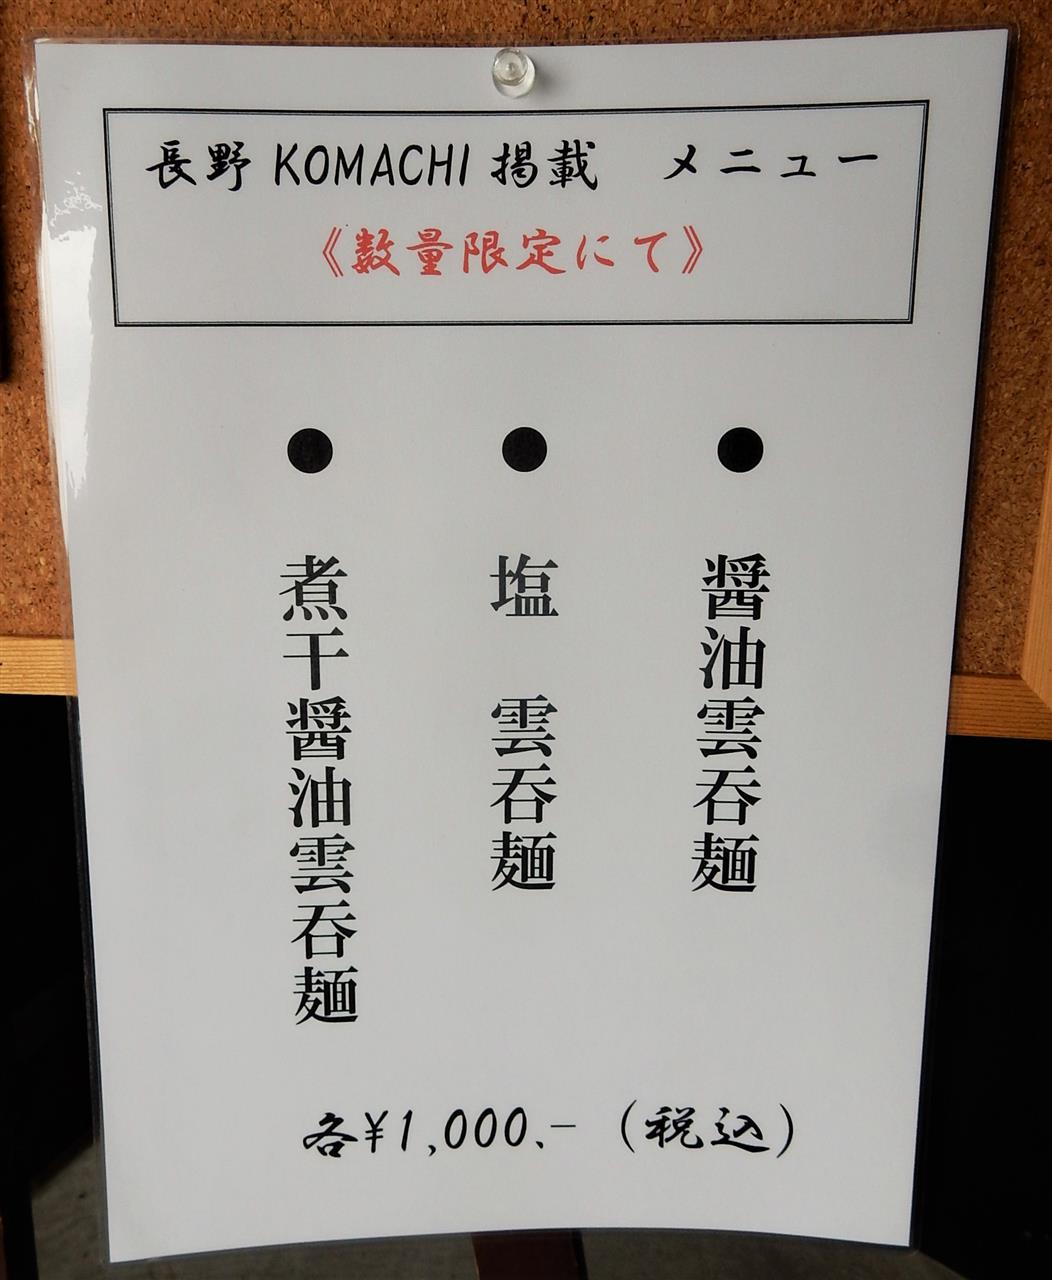 長野 KOMACHI 掲載　メニュー
《数量限定にて》
● 醤油雲呑麺
● 塩　雲呑麺
● 煮干醤油雲呑麺
各¥1,000.-（税込）